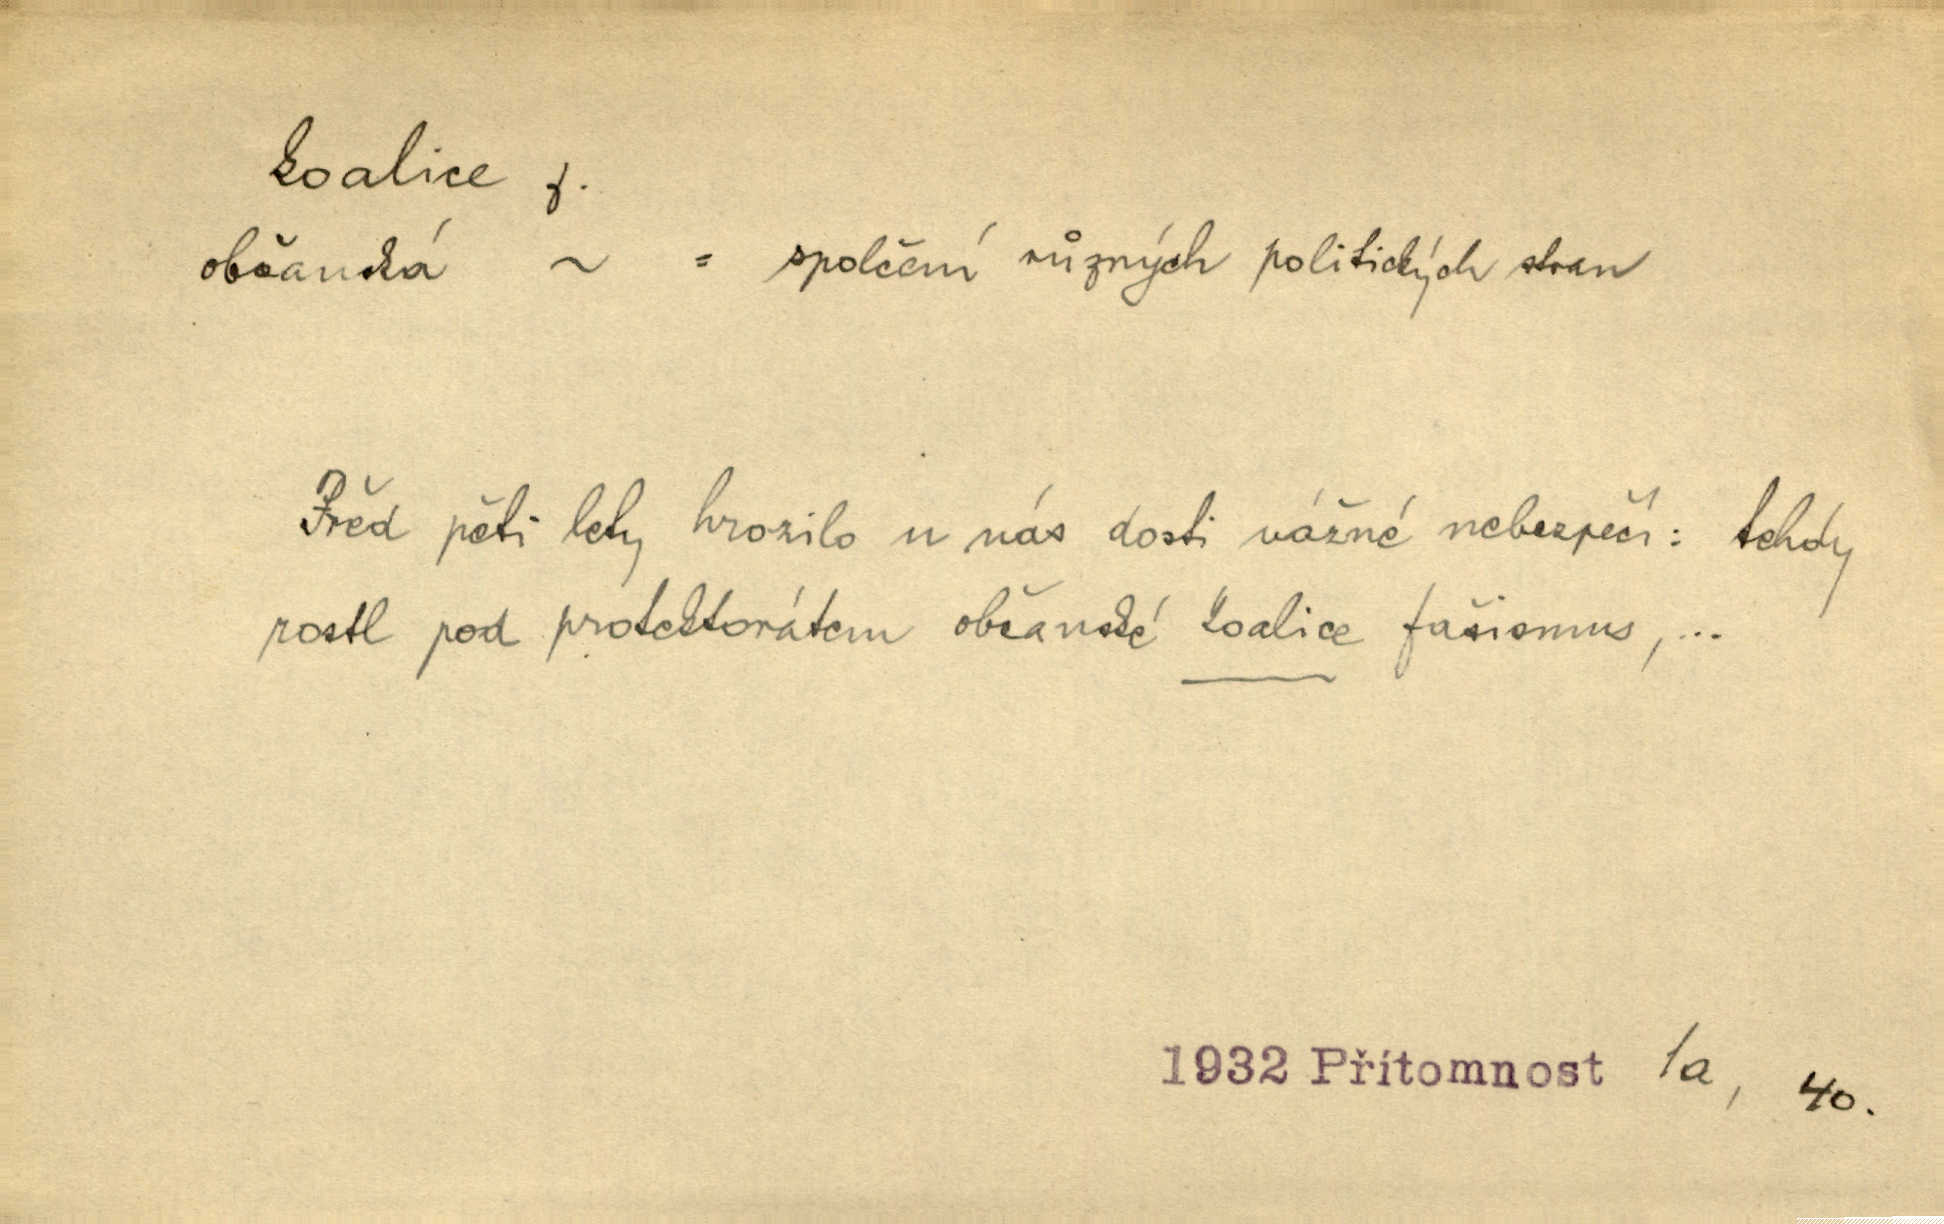 koalice f.
občanská ~ = spolčení různých politických stran
Před pěti lety hrozilo u nás dosti vážné nebezpečí: tehdy
rostl pod protektorátem občanské koalice fašismus, ...
1932 Přítomnost 1a, 40.